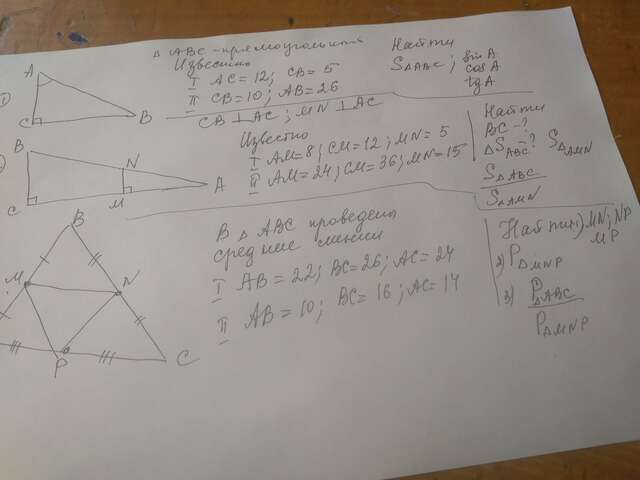 Δ ABC - прямоугольный
Известно
I AC = 12; CB = 5
II CB = 10; AB = 26
Найти
S ΔABC; sin A
cos A
tg A
1)
A
C
B
CB ⊥ AC; MN ⊥ AC
Известно
I AM = 8; CM = 12; MN = 5
II AM = 24; CM = 36; MN = 15
Найти
BC - ?
ΔS ABC - ? S ΔAMN
S ΔABC
S ΔAMN
B
N
C
M
A
В Δ ABC проведены
средние линии
I AB = 22; BC = 26; AC = 24
II AB = 10; BC = 16; AC = 14
Найти 1) MN; NP
MP
2) P ΔMNP
3) P ΔABC
P ΔMNP
B
M
N
P
C